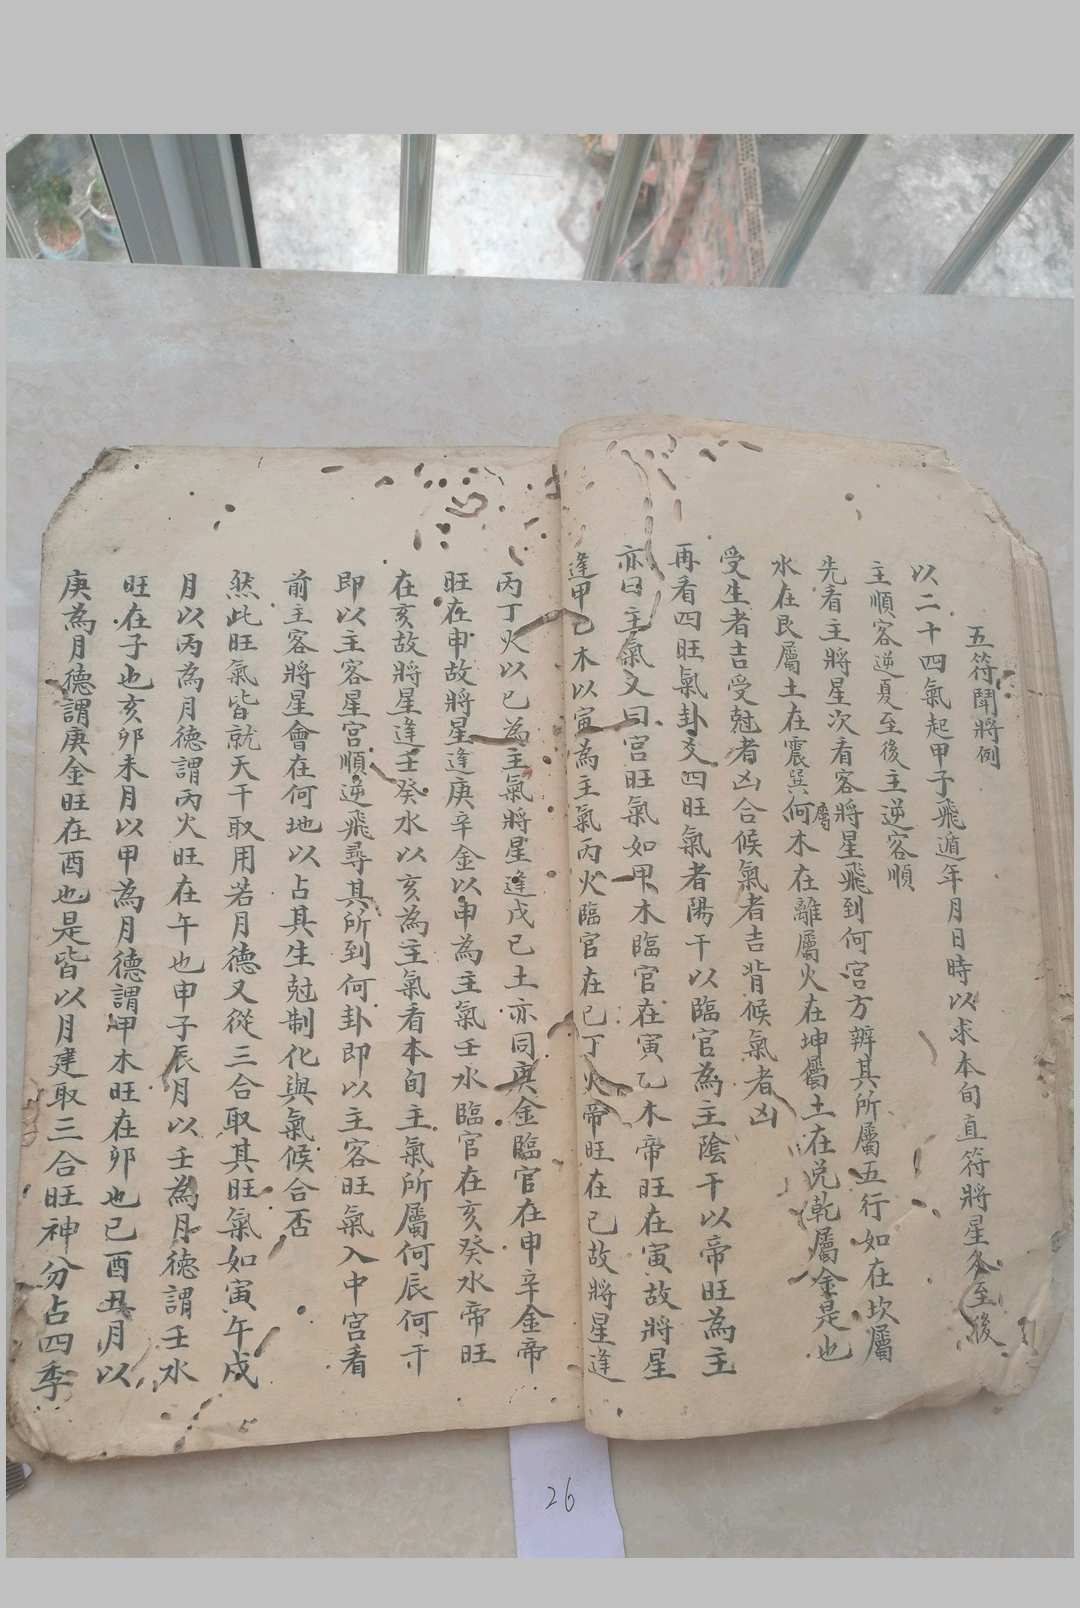 五符鬪將例
以二十四氣起甲子飛遁年月日時以求本旬直符將星冬至後
主順客逆夏至後主逆客順
先看主將星次看客將星飛到何宮方辨其所屬五行如在坎屬
水在艮屬土在震巽何屬木在離屬火在坤屬土在兌乾屬金是也
受生者吉受尅者凶合候氣者吉背候氣者凶
再看四旺氣卦爻四旺氣者陽干以臨官為主陰干以帝旺為主
亦曰主氣又曰宮旺氣如甲木臨官在寅乙木帝旺在寅故將星
逢甲乙木以寅為主氣丙火臨官在巳丁火帝旺在巳故將星逢
丙丁火以巳為主氣將星逢戊己土亦同庚金臨官在申辛金帝
旺在申故將星逢庚辛金以申為主氣壬水臨官在亥癸水帝旺
在亥故將星逢壬癸水以亥為主氣看本旬主氣所屬何辰何干
即以主客星宮順逆飛尋其所到何卦即以主客旺氣入中宮看
前主客將星會在何地以占其生尅制化與氣候合否
然此旺氣皆就天干取用若月德又從三合取其旺氣如寅午戌
月以丙為月德謂丙火旺在午也申子辰月以壬為月德謂壬水
旺在子也亥卯未月以甲為月德謂甲木旺在卯也巳酉丑月以
庚為月德謂庚金旺在酉也是皆以月建取三合旺神分占四季
26